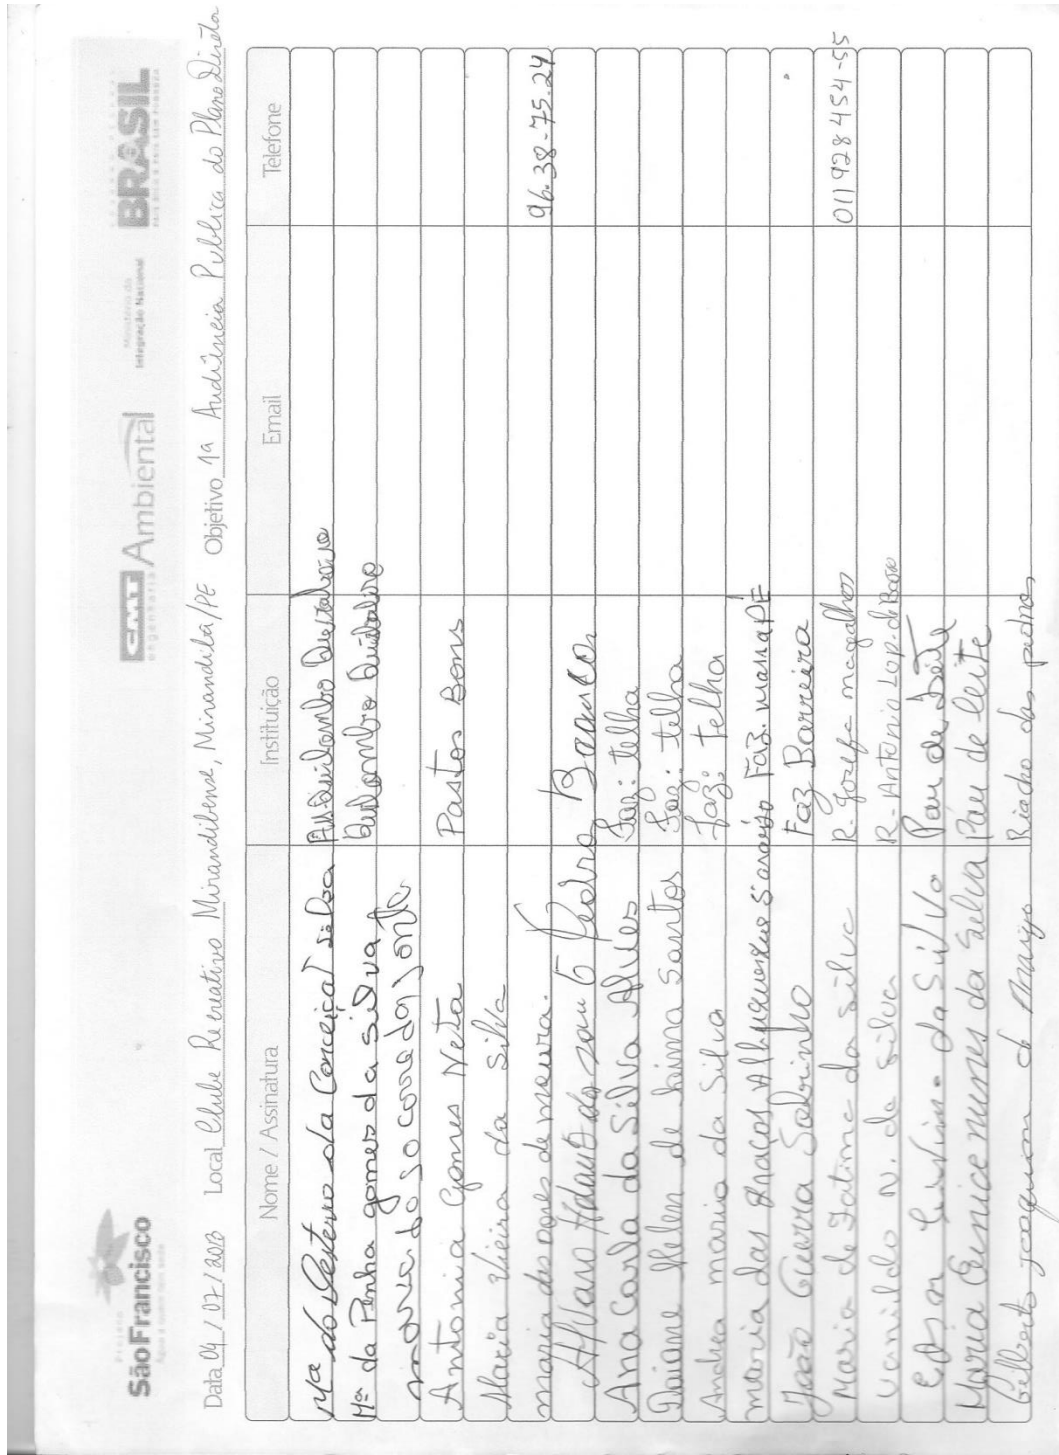 Projeto
São Francisco
Água a quem tem sede
CMT Ambiental
engenharia
Ministério da
Integração Nacional
BRASIL
PAÍS RICO É PAÍS SEM POBREZA
Data 04/07/2013 Local Clube Recreativo Mirandibense, Mirandiba/PE Objetivo 1ª Audiência Publica do Plano Diretor
Nome / Assinatura Instituição Email Telefone
Mª do Desterro da Conceição Silva
Mª da Penha gomes da silva
maria do socorro
Antonia Gomes Neta Pastos Bons
Maria Vieira da Silva
maria das dores de moura. 96.38-75.24
Alvaro Pedra Branca
Ana Carla da Silva Alves Faz: telha
Daiane Helen de Lima Santos Faz: telha
Andrea maria da Silva faz: telha
maria das graças Albuquerque Faz.
João Guerra Sobrinho Faz Barreira
Maria de Fatima da silva R. Josefa magalhos 011928454-55
Vanildo N. da Silva R. Antonio Lop. de Barros
Edson da Silva Pau de Leite
Maria Eunice nunes da Silva Pau de leite
Gilberto joaquim de Araujo Riacho das pedras